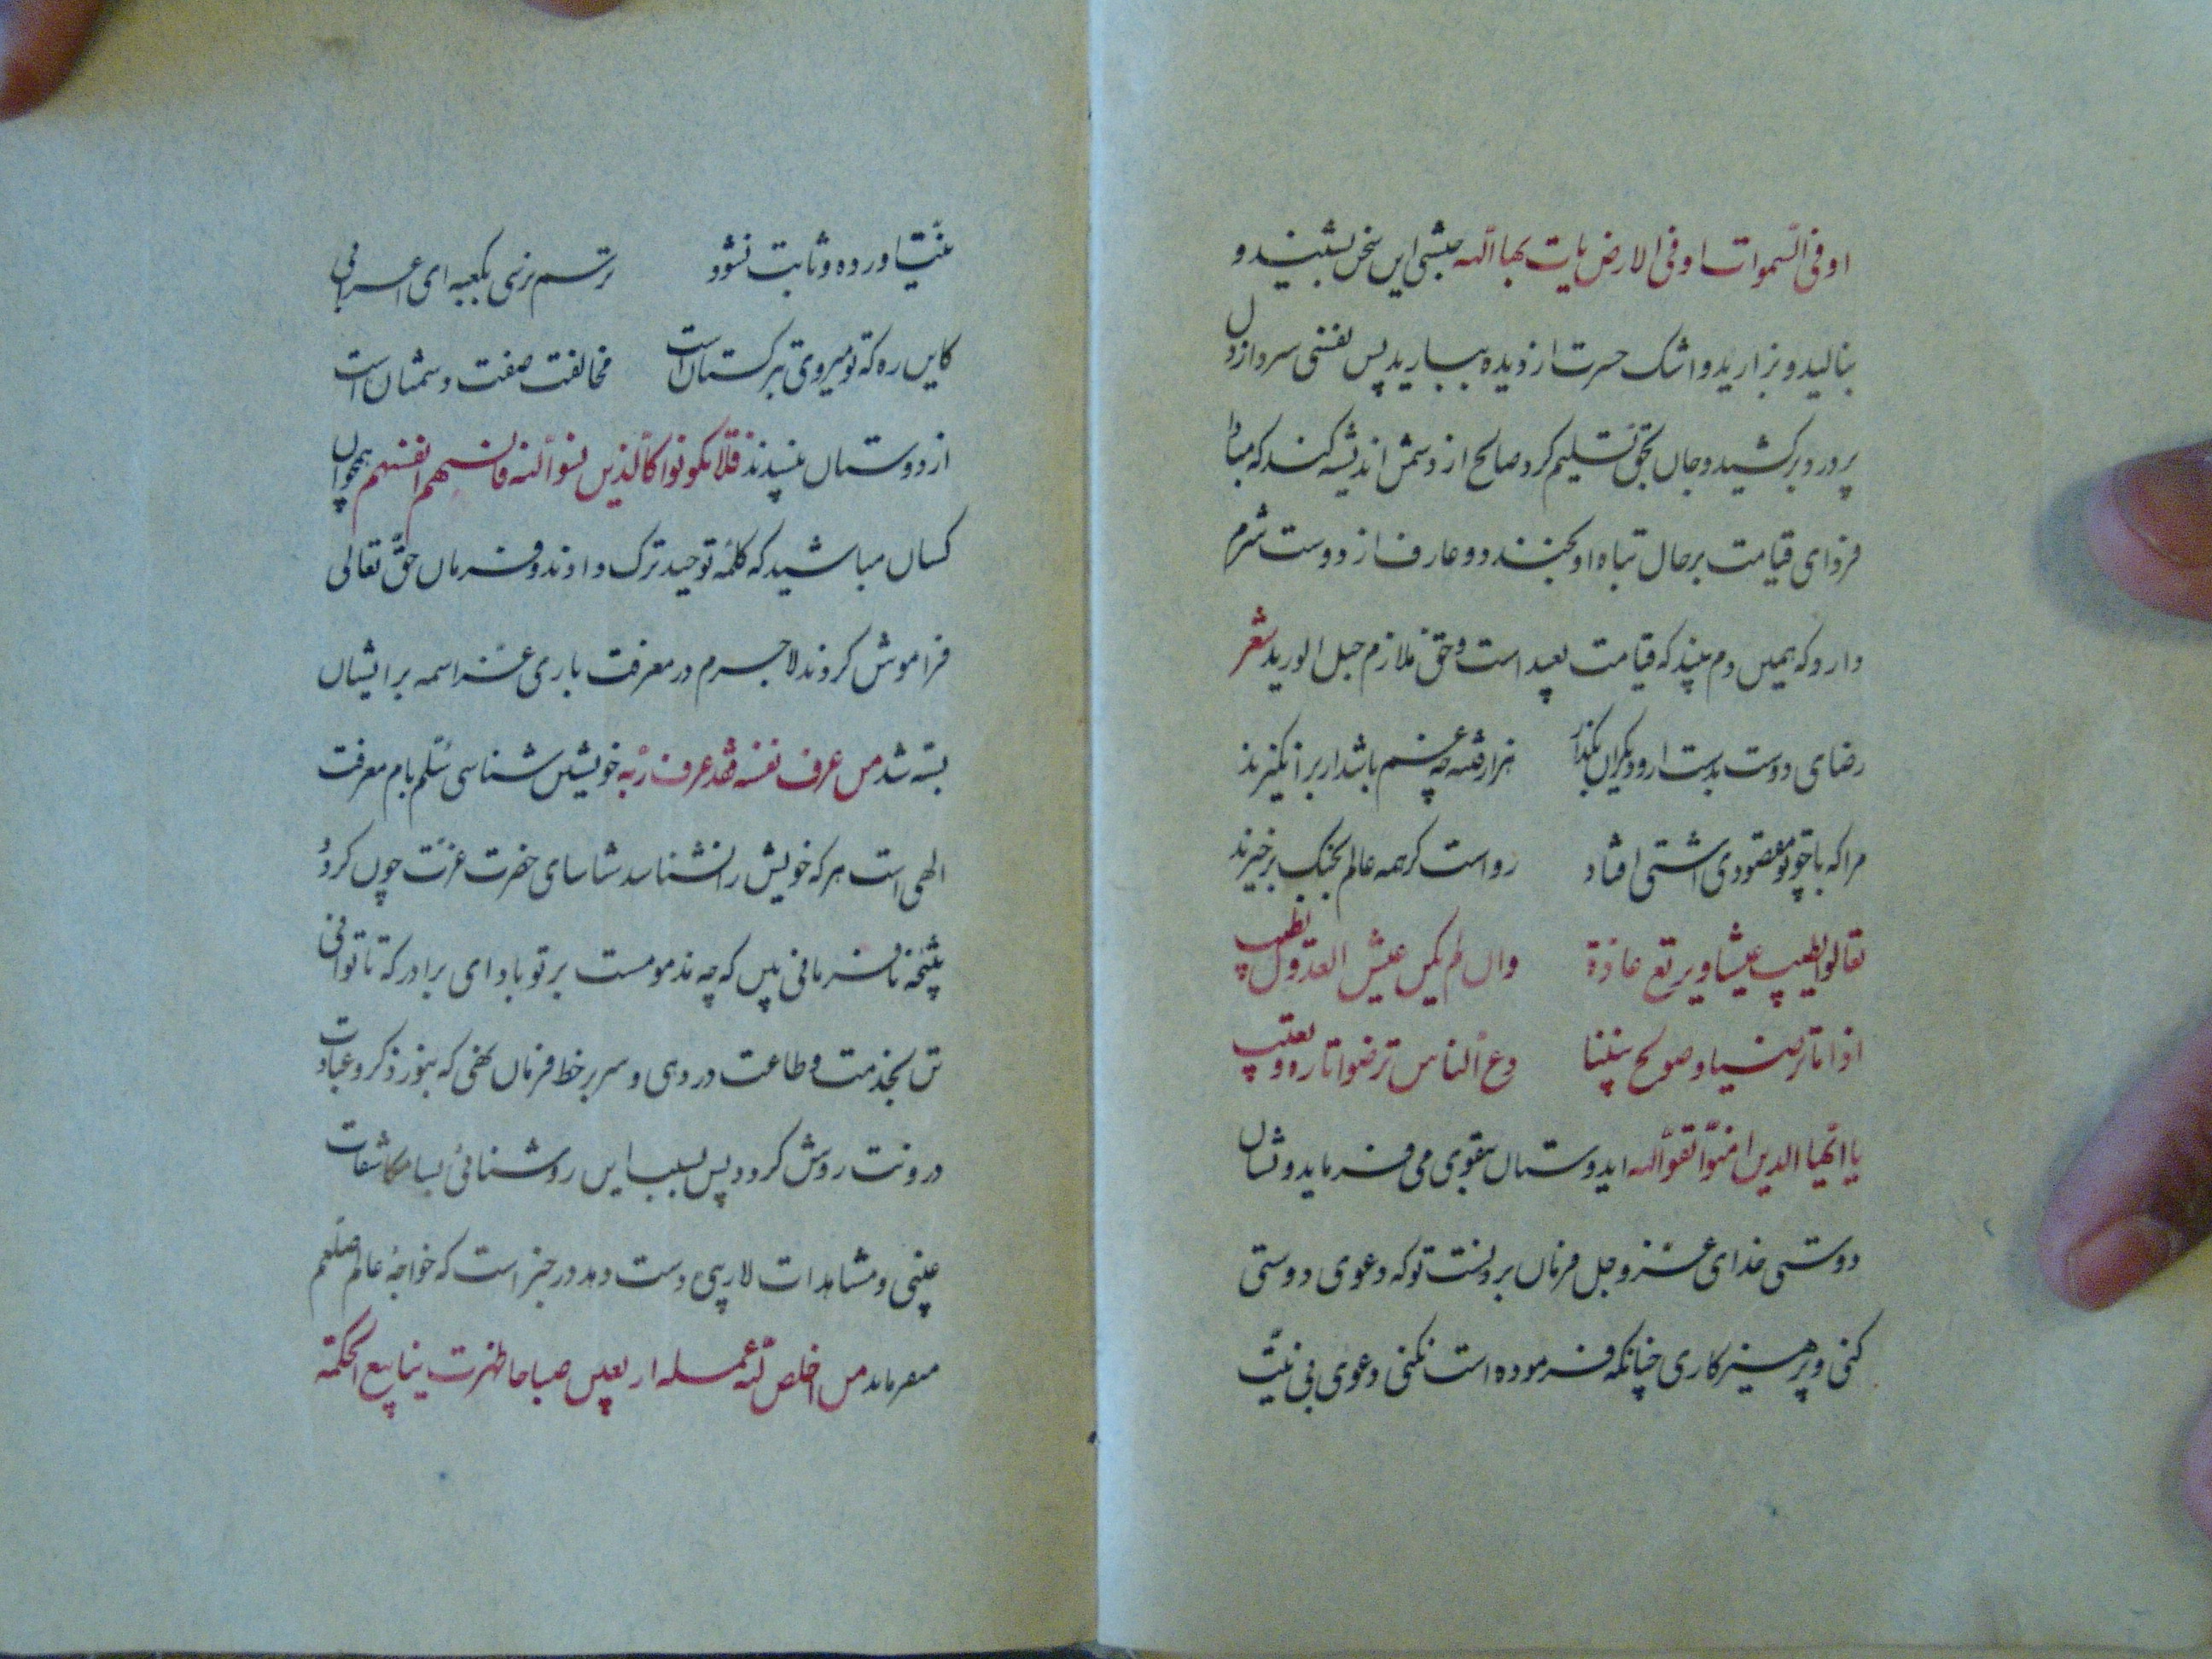 او فی السموات او فی الارض یات بها الله حبشی این سخن بشنید و
بنالید و بزارید و اشک حسرت از دیده ببارید پس نفسی سرد از دل
پر درد برکشید و جان بحق تسلیم کرد صالح از دشمن اندیشه کند که مبادا
فردای قیامت بر حال تباه او بخندد و عارف از دوست شرم
دارد که همین دم بیند که قیامت بعید است و حق ملازم حبل الورید شعر
رضای دوست بدست ار و دیکران بکذار هزار فتنه چه غم باشد ار برانکیزند
مرا که با چو تو مقصودی اشتی افتاد رواست کر همه عالم بجنک برخیزند
تعالوا نطیب عیشا ویرتع عاذة وان لم یکن عیش العذول یطیب
اذا ما تراضینا وصولح بیننا دع الناس ترضوا تارة وتعتب
یا ایها الذین امنوا اتقوا الله ای دوستان بتقوی می فرماید و نشان
دوستی خدای عز و جل فرمان بردنست تو که دعوی دوستی
کنی و پرهیزکاری چنانکه فرموده است نکنی دعوی بی نیت
بینت اورده و ثابت نشود ترسم نرسی بکعبه ای اعرابی
کاین ره که تو میروی بترکستان است مخالفت صفت دشمنان است
از دوستان نپسندند فلا تکونوا کالذین نسوا الله فانسیهم انفسهم همچو آن
کسان مباشید که کلمه توحید ترک دادند و فرمان حق تعالی
فراموش کردند لاجرم در معرفت باری عز اسمه بر ایشان
بسته شد من عرف نفسه فقد عرف ربه خویشتن شناسی سلم بام معرفت
الهی است هر که خویش را نشناسد شناسای حضرت عزت چون کردد
نتیجه نافرمانی بین که چه مذمومست بر تو باد ای برادر که تا توانی
تن بخدمت و طاعت در دهی و سر بر خط فرمان نهی که بنور ذکر و عبادت
درونت روشن کردد پس بسبب این روشنائی بسا مکاشفات
بینی و مشاهدات لاریبی دست دهد در خبر است که خواجه عالم صلعم
میفرماید من اخلص لله عمله اربعین صباحا ظهرت ینابیع الحکمة